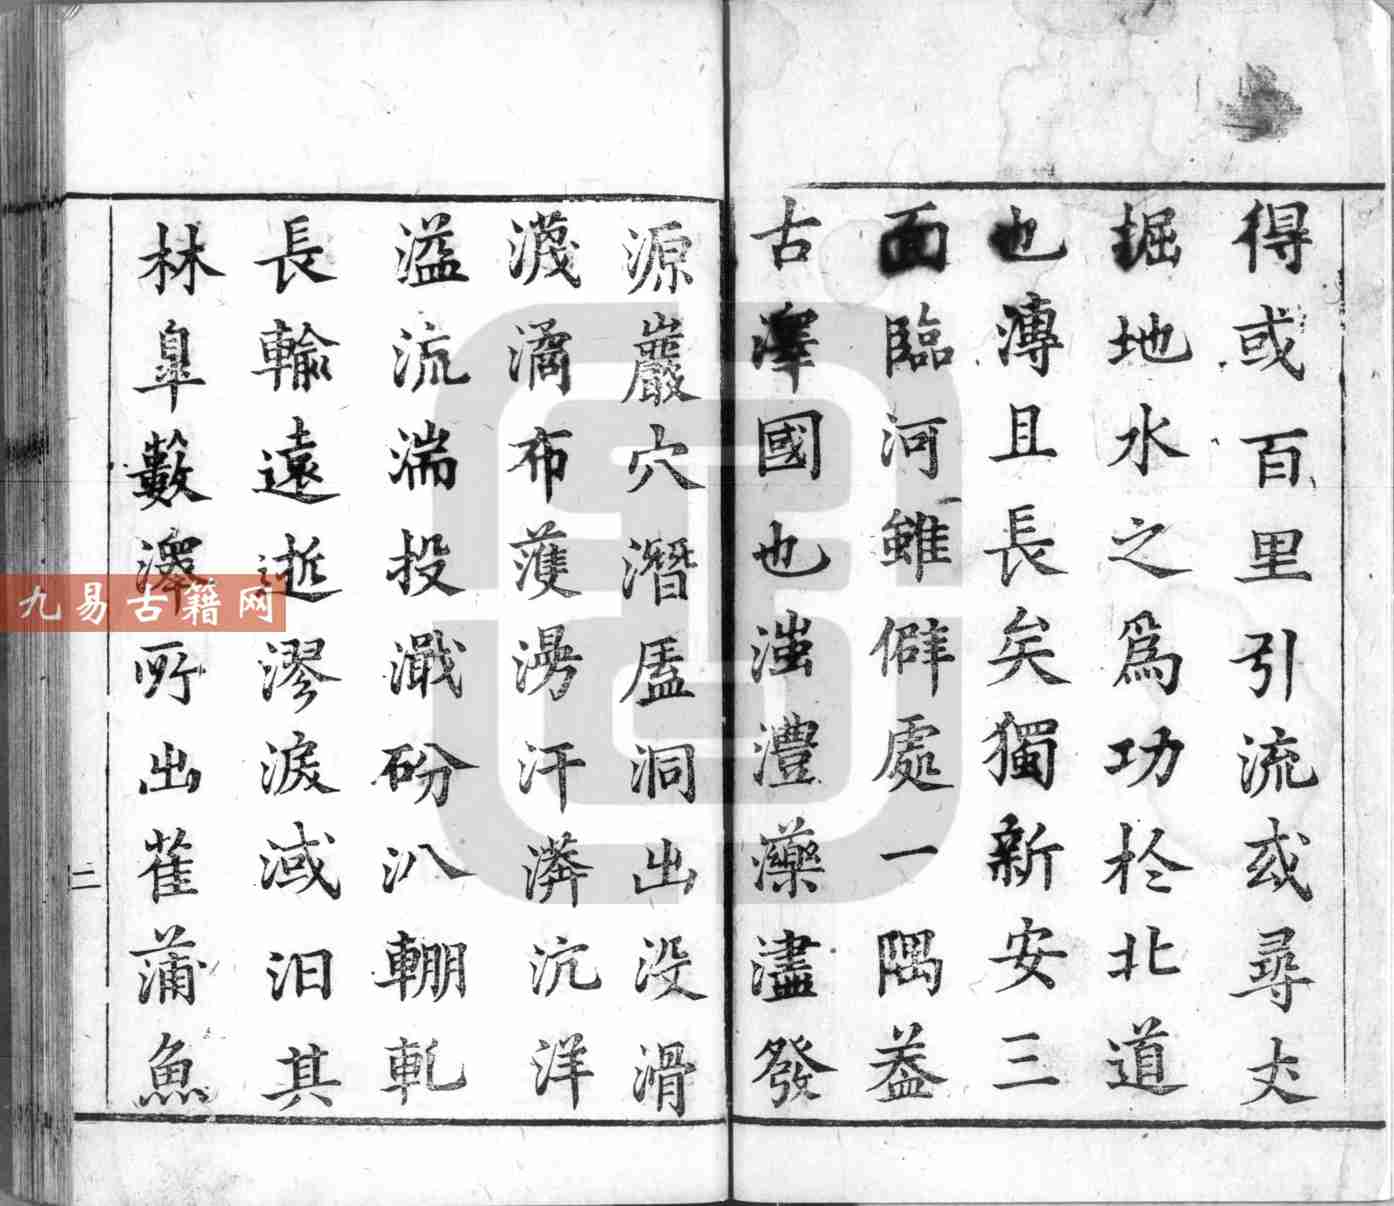 得或百里引流或尋丈
掘地水之爲功於北道
也溥且長矣獨新安三
面臨河雖僻處一隅葢
古澤國也滍灃藥濜發
源巖穴潛廅洞出没滑
瀎潏布濩漫汗漭沆洋
溢流湍投濈砏汃輣軋
長輸遠逝漻淚淢汩其
林皐藪澤所出萑蒲魚
二
九易古籍网